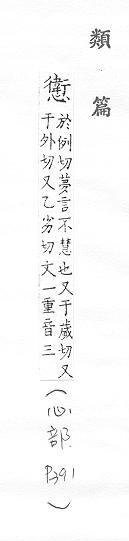 類篇
㦣
於例切夢言不慧也又于歲切又
于外切又乙劣切文一重音三
(心部P391)